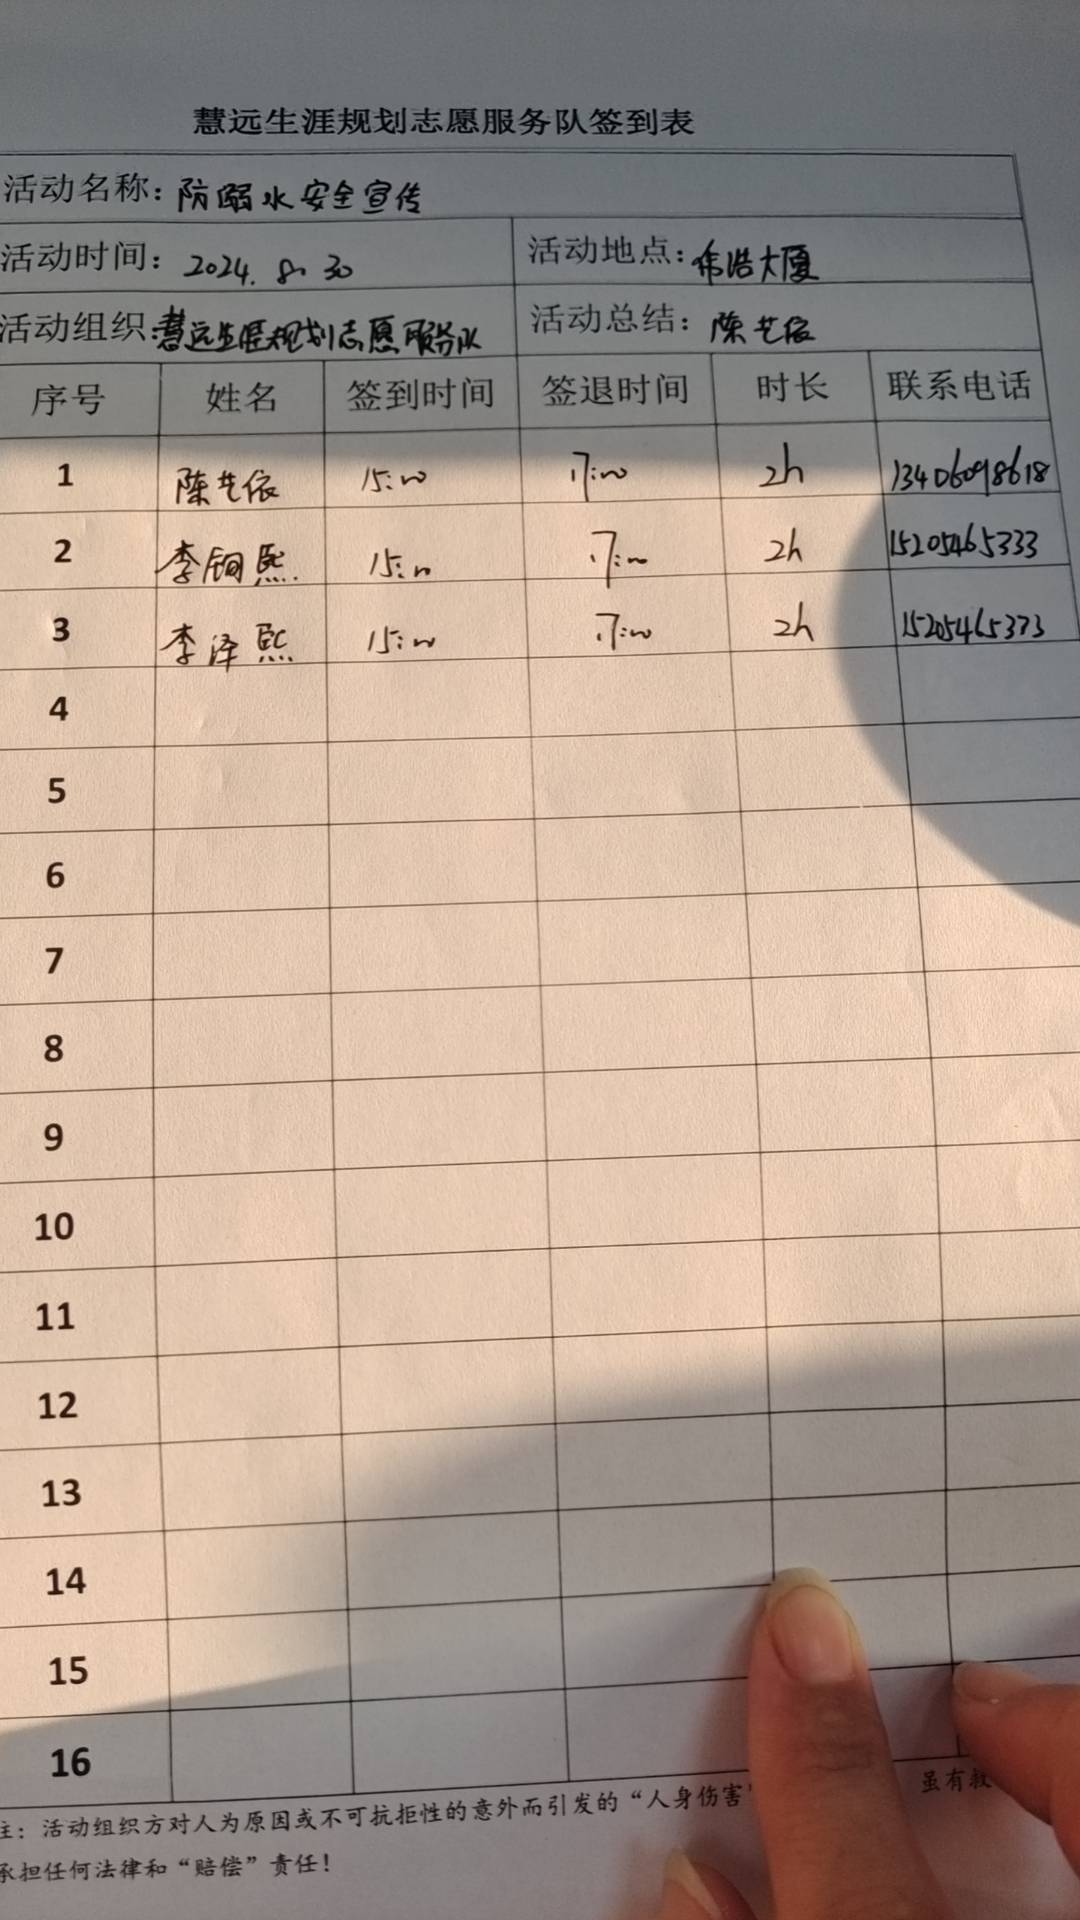 慧远生涯规划志愿服务队签到表
活动名称：防溺水安全宣传
活动时间：2024. 8. 30 活动地点：伟浩大厦
活动组织：慧远生涯规划志愿服务队 活动总结：陈艺依
序号 姓名 签到时间 签退时间 时长 联系电话
1 陈艺依 15:00 17:00 2h 13406098618
2 李 熙 15:00 17:00 2h 15205465333
3 李泽熙 15:00 17:00 2h 15205465373
4
5
6
7
8
9
10
11
12
13
14
15
16
注：活动组织方对人为原因或不可抗拒性的意外而引发的“人身伤害” 虽有救
承担任何法律和“赔偿”责任！